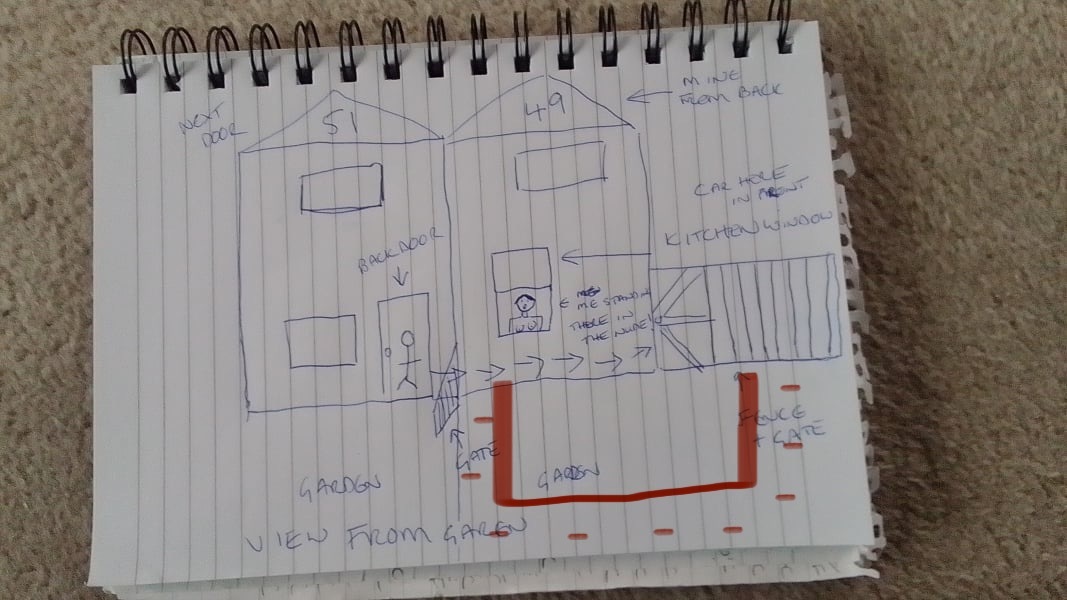 NEXT
DOOR
51
49
← MINE
FROM BACK
CAR HOLE
IN FRONT
KITCHEN WINDOW
BACKDOOR
← ME STANDIN
THERE IN
THE NUDE!
GATE
FENCE
+ GATE
GARDEN
GARDEN
VIEW FROM GAREN